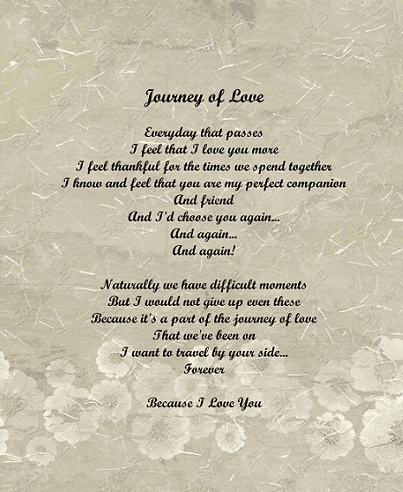 Journey of Love
Everyday that passes
I feel that I love you more
I feel thankful for the times we spend together
I know and feel that you are my perfect companion
And friend
And I'd choose you again...
And again...
And again!
Naturally we have difficult moments
But I would not give up even these
Because it's a part of the journey of love
That we've been on
I want to travel by your side...
Forever
Because I Love You